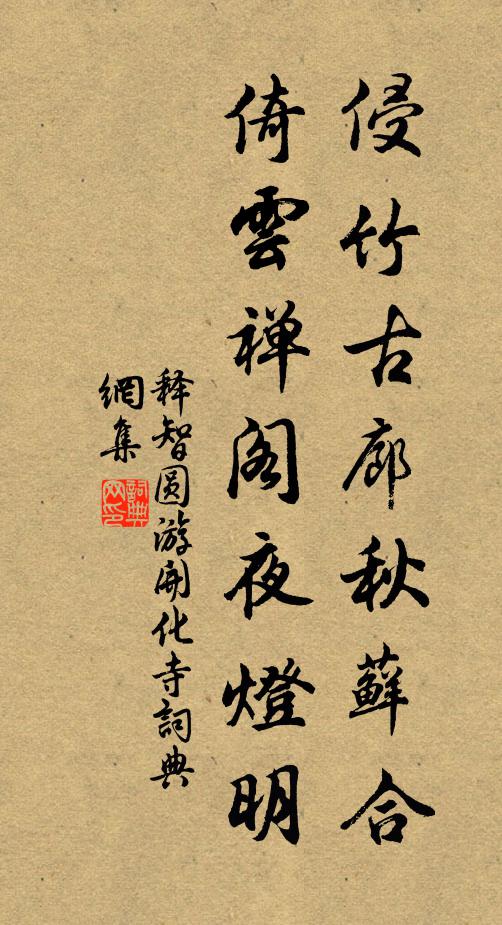 侵竹古廊秋蘚合
倚雲禅阁夜燈明
释智圆游開化寺詞典
網集
詞典
网印